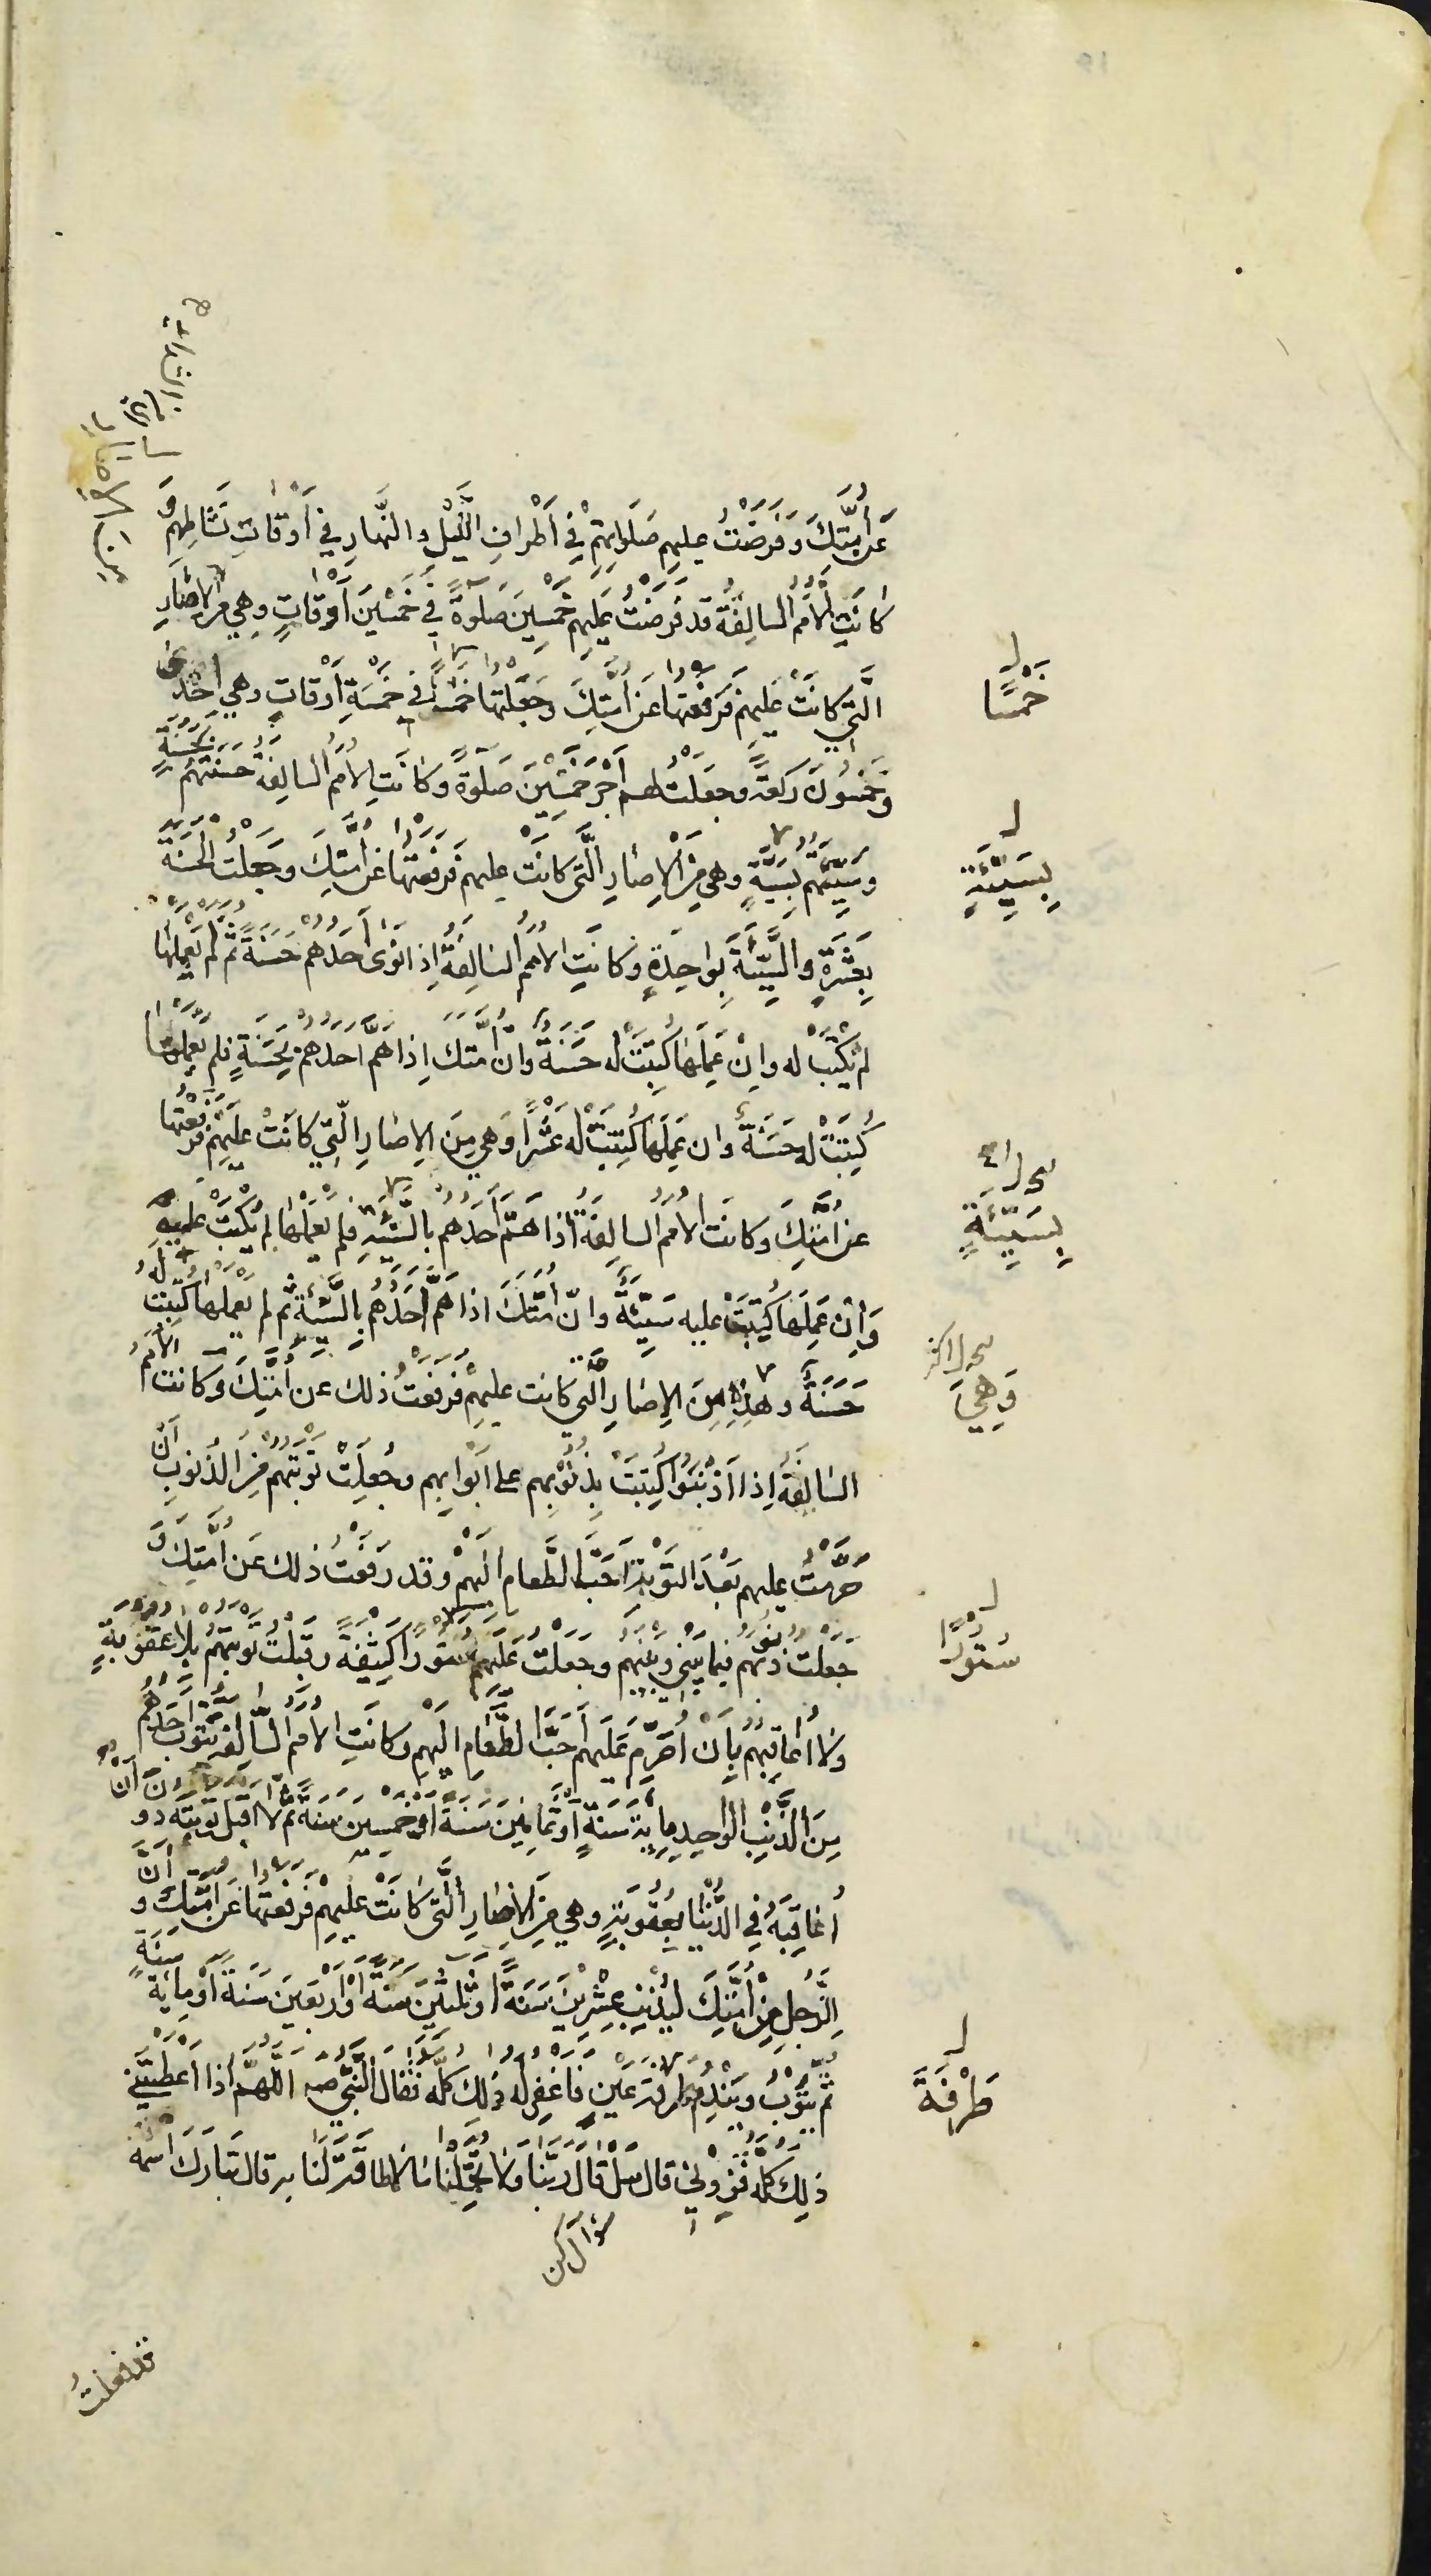 عَنْ أُمَّتِكَ وَفَرَضْتُ عليهم صَلَوَاتِهِمْ فِي أَطْرافِ اللَّيْلِ والنَّهارِ في أَوْقَاتِ نَشَاطِهِمْ وَ
كَانَتِ الأُمَمُ السالِفَةُ قد فَرَضْتُ عَلَيهِم خَمْسِينَ صَلوةً فِي خَمْسِينَ أَوْقاتٍ وهي من الإصَارِ
الَّتِي كَانَتْ عَلَيهِمْ فَرَفَعْتُهَا عَنْ أُمَّتِكَ وَجَعَلْتُهَا خَمْسًا في خَمْسَةِ أَوْقَاتٍ وهي إحْدَى
خَمْسًا
وخَمْسُونَ رَكعَةً وجعَلْتُ لهم أَجْرَ خَمْسِينَ صَلَوةً وكَانَتِ الأُمَمُ السالِفةُ حَسَنَتُهُمْ بحَسَنَةٍ
وسَيِّئَتُهُم بِسَيِّئَةٍ وهي مِنَ الإصَارِ الَّتي كَانَتْ عليهم فَرَفَعْتُهَا عَنْ أُمَّتِكَ وجَعَلْتُ الْحَسَنَةَ
بِسَيِّئَةٍ
بِعَشَرَةٍ والسَّيِّئَةَ بِوَاحِدَةٍ وكَانَتِ الأُمَمُ السَالِفَةُ إِذا نَوى أَحَدُهُمْ حَسَنَةً ثُمَّ لَمْ يَعْمَلْهَا
لَمْ تُكْتَبْ له وإنْ عَمِلَهَا كُتِبَتْ له حَسَنَةً وانَّ أُمَّتَكَ إِذا هَمَّ أَحَدُهُمْ بِحَسَنَةٍ فلم يَعْمَلْهَا
كُتِبَتْ له حَسَنَةً وان عَمِلَهَا كُتِبَتْ له عَشْرًا وَهي مِنَ الإصَارِ الَّتِي كَانَتْ عَلَيْهِمْ فَرَفَعْتُهَا
عن أُمَّتِكَ وكانَت الأُمَمُ السالِفَةُ إذا هَمَّ أَحَدُهُم بالسَّيِّئَةِ فلم يَعْمَلْهَا لم تُكْتَبْ عليهِ
بِسَيِّئَةٍ
وَإِنْ عَمِلَهَا كُتِبَتْ عليه سَيِّئَةً وانّ أُمَّتَكَ اذا هَمَّ أَحَدُهُمْ بِالسَّيِّئَةِ ثُمَّ لم يَعْمَلْهَا كُتِبَتْ لَهُ
حَسَنَةً وهذِهِ مِنَ الإصَارِ الَّتي كَانت عليهِمْ فَرَفَعْتُ ذلك عن أُمَّتِكَ وكانت الأُمَمُ
وَهِيَ
السَالِفَةُ إذا أَذْنَبُوا كُتِبَتْ ذُنُوبُهم على أَبْوَابِهِم وجُعِلَتْ تَوْبَتُهُم مِنَ الذُنوبِ أَنْ
حَرَّمْتُ عليهم بَعْدَ التَّوْبَةِ أَحَبَّ الطَّعامِ إلَيْهِمْ وقد رَفَعْتُ ذلك عَن أُمَّتِكَ وَ
جَعلتُ ذنُوبَهم فيما بَيْنِي وبَيْنَهُم وجَعَلْتُ عَلَيْهِم سُتُورًا كَثِيفَةً وقَبِلْتُ تَوْبَتَهُمْ بِلَا عُقُوبَةٍ
سُتُورًا
ولا أُعَاقِبُهُمْ بِأَنْ أُحَرِّمَ عَلَيهم أَحَبَّ الطَّعَامِ الَيْهِمْ وكانَتِ الأُمَمُ السَّالِفَةُ يَتُوبُ أَحَدُهُمْ
مِنَ الذَّنْبِ الواحِدِ مِائَةَ سَنَةٍ أَوْ ثَمَانِينَ سَنَةً أَوْ خَمْسِينَ سَنَةً ثُمَّ لا أَقْبَلُ تَوْبَتَه دونَ أَنْ
أُعَاقِبَهُ فِي الدُّنْيَا بِعُقُوبَةٍ وهي مِنَ الإصَارِ الَّتي كَانَتْ عليهِمْ فَرَفَعْتُهَا عَنْ أُمَّتِكَ وَ أَنَّ
الرَّجُلَ مِنْ أُمَّتِكَ لَيُذْنِبُ عِشْرِينَ سَنَةً أَوْ ثَلثينَ سَنَةً أوْ أَرْبَعِينَ سَنَةً أَوْ مِائَةَ سَنَةٍ
ثُمَّ يَتُوبُ ويَنْدِمُ طرفة عَيْنٍ فَأَغْفِرُ لَهُ ذلك كُلَّه فَقَالَ النَّبِيُّ صه اللَّهُمَّ اذا أَعْطَيْتَنِي
طَرْفَةَ
ذلِكَ كُلَّه فَزِدْنِي قال سَلْ قَالَ رَبَّنَا وَلَا تُحَمِّلْنَا مَا لَا طَاقَةَ لَنَا به قال تبَارَكَ اسْمُه
سؤال كن
قد فعلتُ